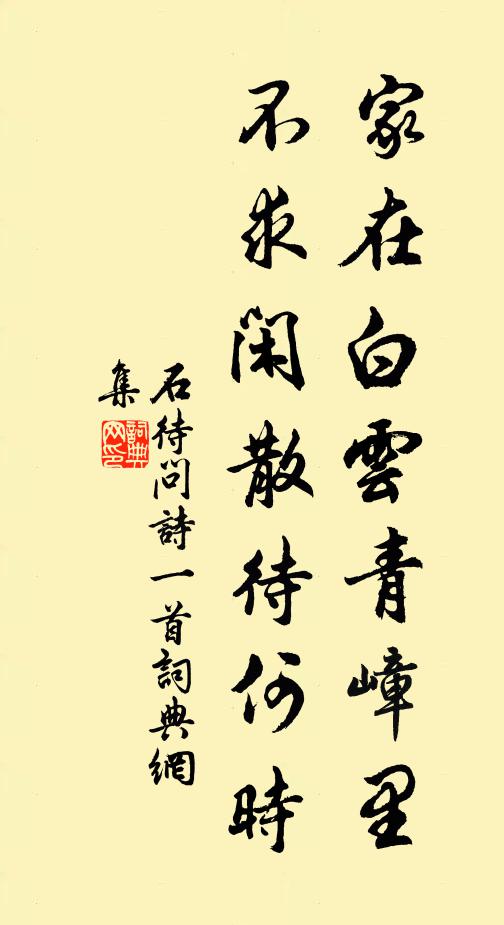 家在白雲青嶂里
不求闲散待何時
石待问詩一首詞典網
集
詞典
网印